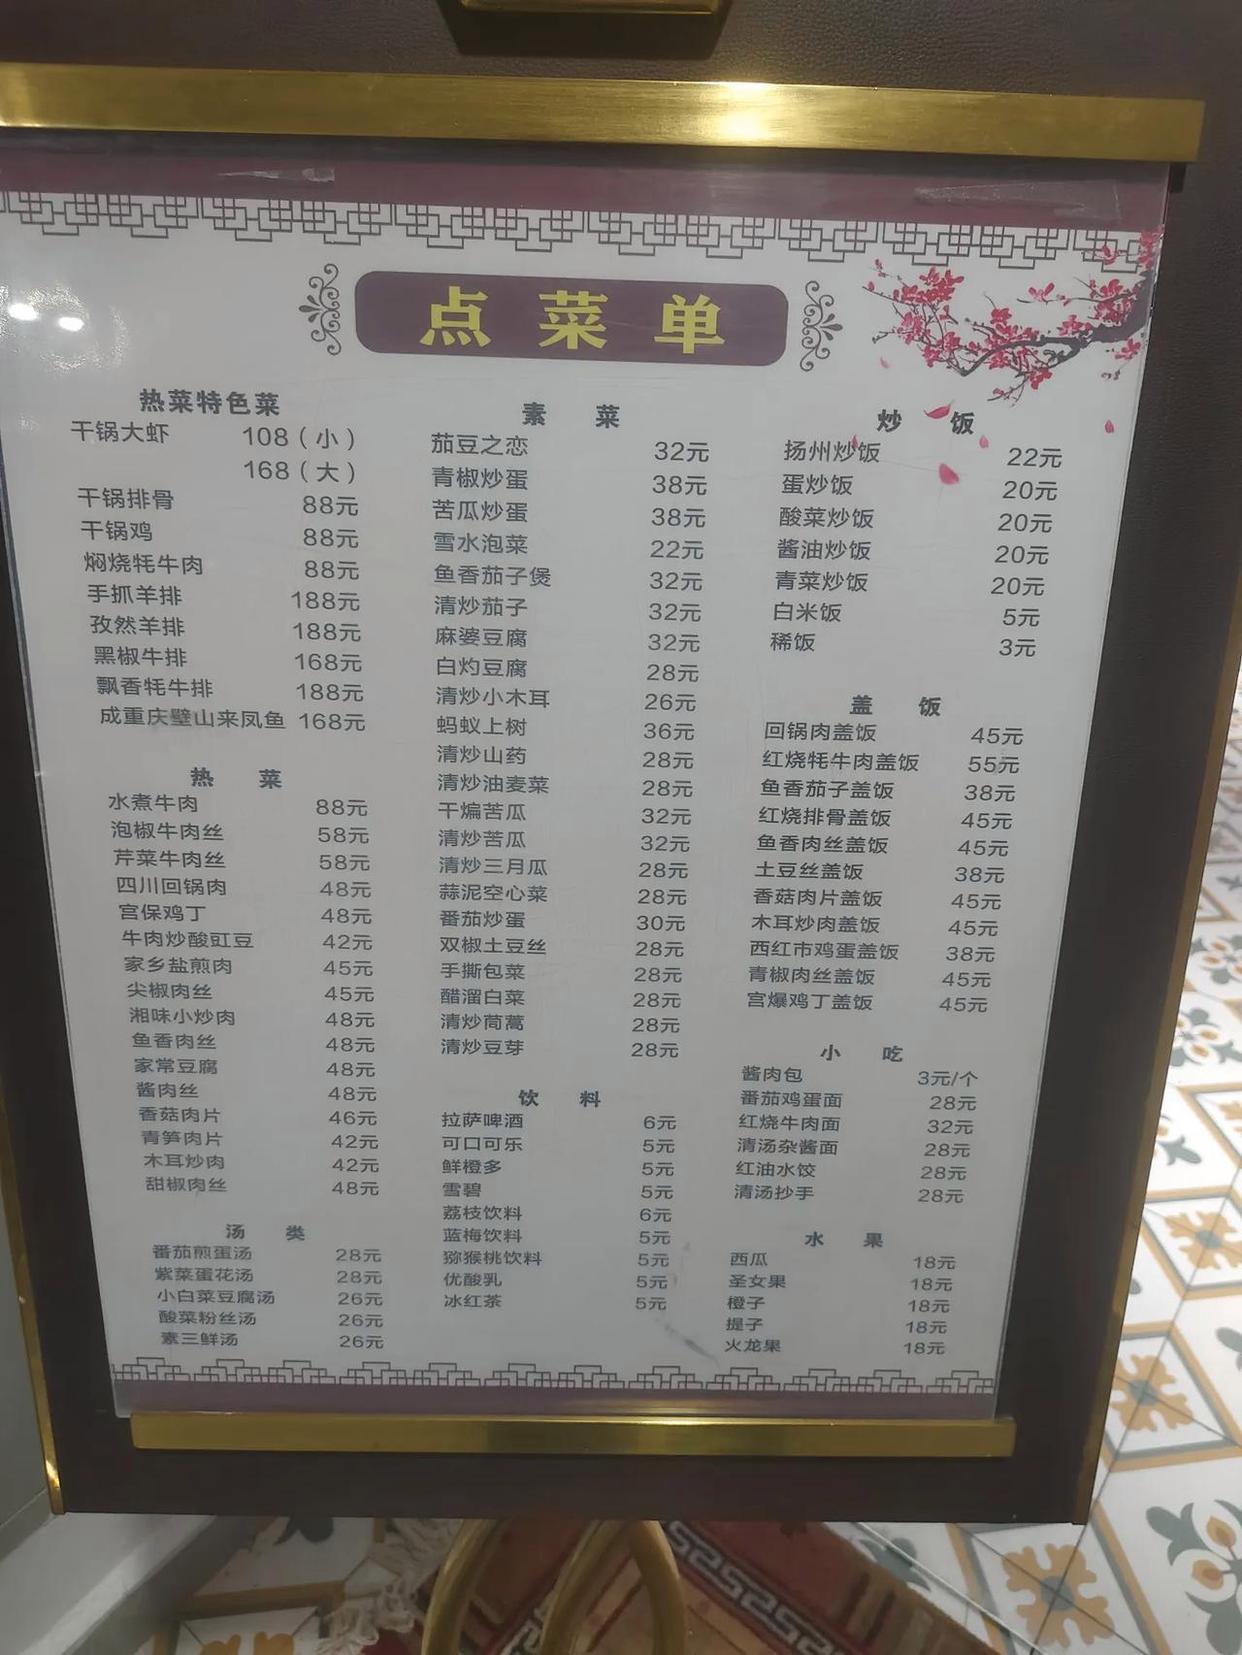 点菜单
热菜特色菜
干锅大虾 108（小）
168（大）
干锅排骨 88元
干锅鸡 88元
焖烧牦牛肉 88元
手抓羊排 188元
孜然羊排 188元
黑椒牛排 168元
飘香牦牛排 188元
成重庆璧山来凤鱼 168元
热菜
水煮牛肉 88元
泡椒牛肉丝 58元
芹菜牛肉丝 58元
四川回锅肉 48元
宫保鸡丁 48元
牛肉炒酸豇豆 42元
家乡盐煎肉 45元
尖椒肉丝 45元
湘味小炒肉 48元
鱼香肉丝 48元
家常豆腐 48元
酱肉丝 48元
香菇肉片 46元
青笋肉片 42元
木耳炒肉 42元
甜椒肉丝 48元
汤类
番茄煎蛋汤 28元
紫菜蛋花汤 28元
小白菜豆腐汤 26元
酸菜粉丝汤 26元
素三鲜汤 26元
素菜
茄豆之恋 32元
青椒炒蛋 38元
苦瓜炒蛋 38元
雪水泡菜 22元
鱼香茄子煲 32元
清炒茄子 32元
麻婆豆腐 32元
白灼豆腐 28元
清炒小木耳 26元
蚂蚁上树 36元
清炒山药 28元
清炒油麦菜 28元
干煸苦瓜 32元
清炒苦瓜 32元
清炒三月瓜 28元
蒜泥空心菜 28元
番茄炒蛋 30元
双椒土豆丝 28元
手撕包菜 28元
醋溜白菜 28元
清炒茼蒿 28元
清炒豆芽 28元
饮料
拉萨啤酒 6元
可口可乐 5元
鲜橙多 5元
雪碧 5元
荔枝饮料 6元
蓝梅饮料 5元
猕猴桃饮料 5元
优酸乳 5元
冰红茶 5元
炒饭
扬州炒饭 22元
蛋炒饭 20元
酸菜炒饭 20元
酱油炒饭 20元
青菜炒饭 20元
白米饭 5元
稀饭 3元
盖饭
回锅肉盖饭 45元
红烧牦牛肉盖饭 55元
鱼香茄子盖饭 38元
红烧排骨盖饭 45元
鱼香肉丝盖饭 45元
土豆丝盖饭 38元
香菇肉片盖饭 45元
木耳炒肉盖饭 45元
西红市鸡蛋盖饭 38元
青椒肉丝盖饭 45元
宫爆鸡丁盖饭 45元
小吃
酱肉包 3元/个
番茄鸡蛋面 28元
红烧牛肉面 32元
清汤杂酱面 28元
红油水饺 28元
清汤抄手 28元
水果
西瓜 18元
圣女果 18元
橙子 18元
提子 18元
火龙果 18元